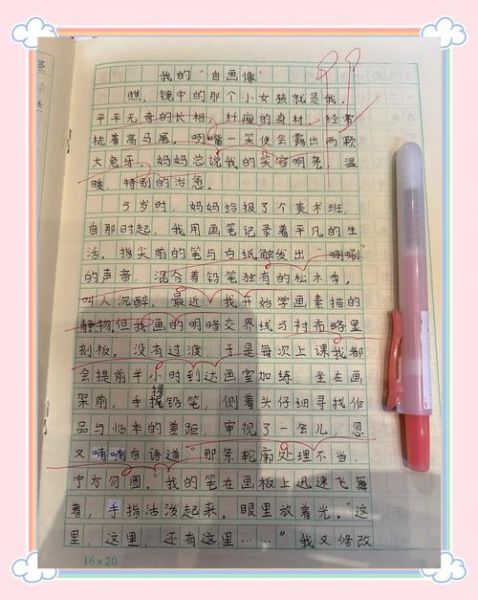 我的"自画像"
瞧，镜中的那个小女孩就是我，
平平无奇的长相，纤瘦的身材，经常
梳着高马尾，咧嘴一笑便会露出两颗
大兔牙。妈妈总说我的笑容明亮、温
暖，特别的治愈。
5岁时，妈妈给报了个美术班，
自那时起，我用画笔记录着平凡的生
活。指尖前的笔与白纸触发出"唰唰"
的声音，混夯着铅笔独有的松木香，
叫人沉醉。最近，我开始学画素描的
静物但我画的明暗交界线与衬布略显
刻板，没有过渡。于是每次上课我都
会提前半小时到达画室加练。坐在画
架前，手握铅笔，侧着头仔细寻找作
品与临本的差距，审视了一会儿，忽
又喃喃自语道"那条轮廓处理不当，
宁方勿圆。"我的笔在画板上迅速飞舞
着，手指活泼起来，眼里放着光。"这
里，这里，还有这里……"我又修改
16×20